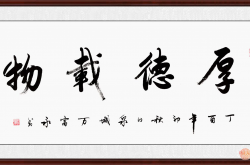 厚德载物
丁酉年初秋於泉城万富永书